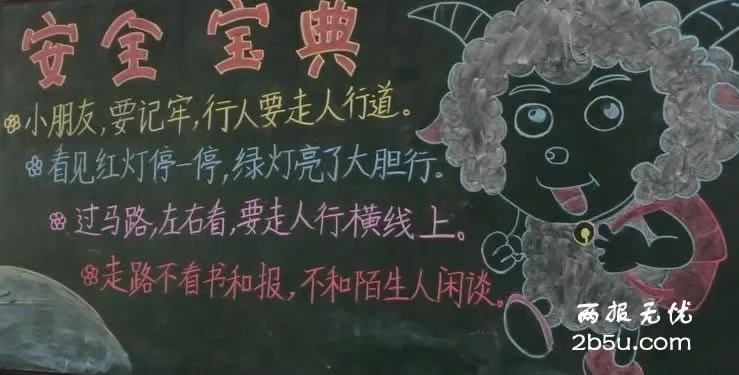 安全宝典
小朋友,要记牢,行人要走人行道。
看见红灯停一停,绿灯亮了大胆行。
过马路,左右看,要走人行横线上。
走路不看书和报,不和陌生人闲谈。
两报无忧
2b5u.com